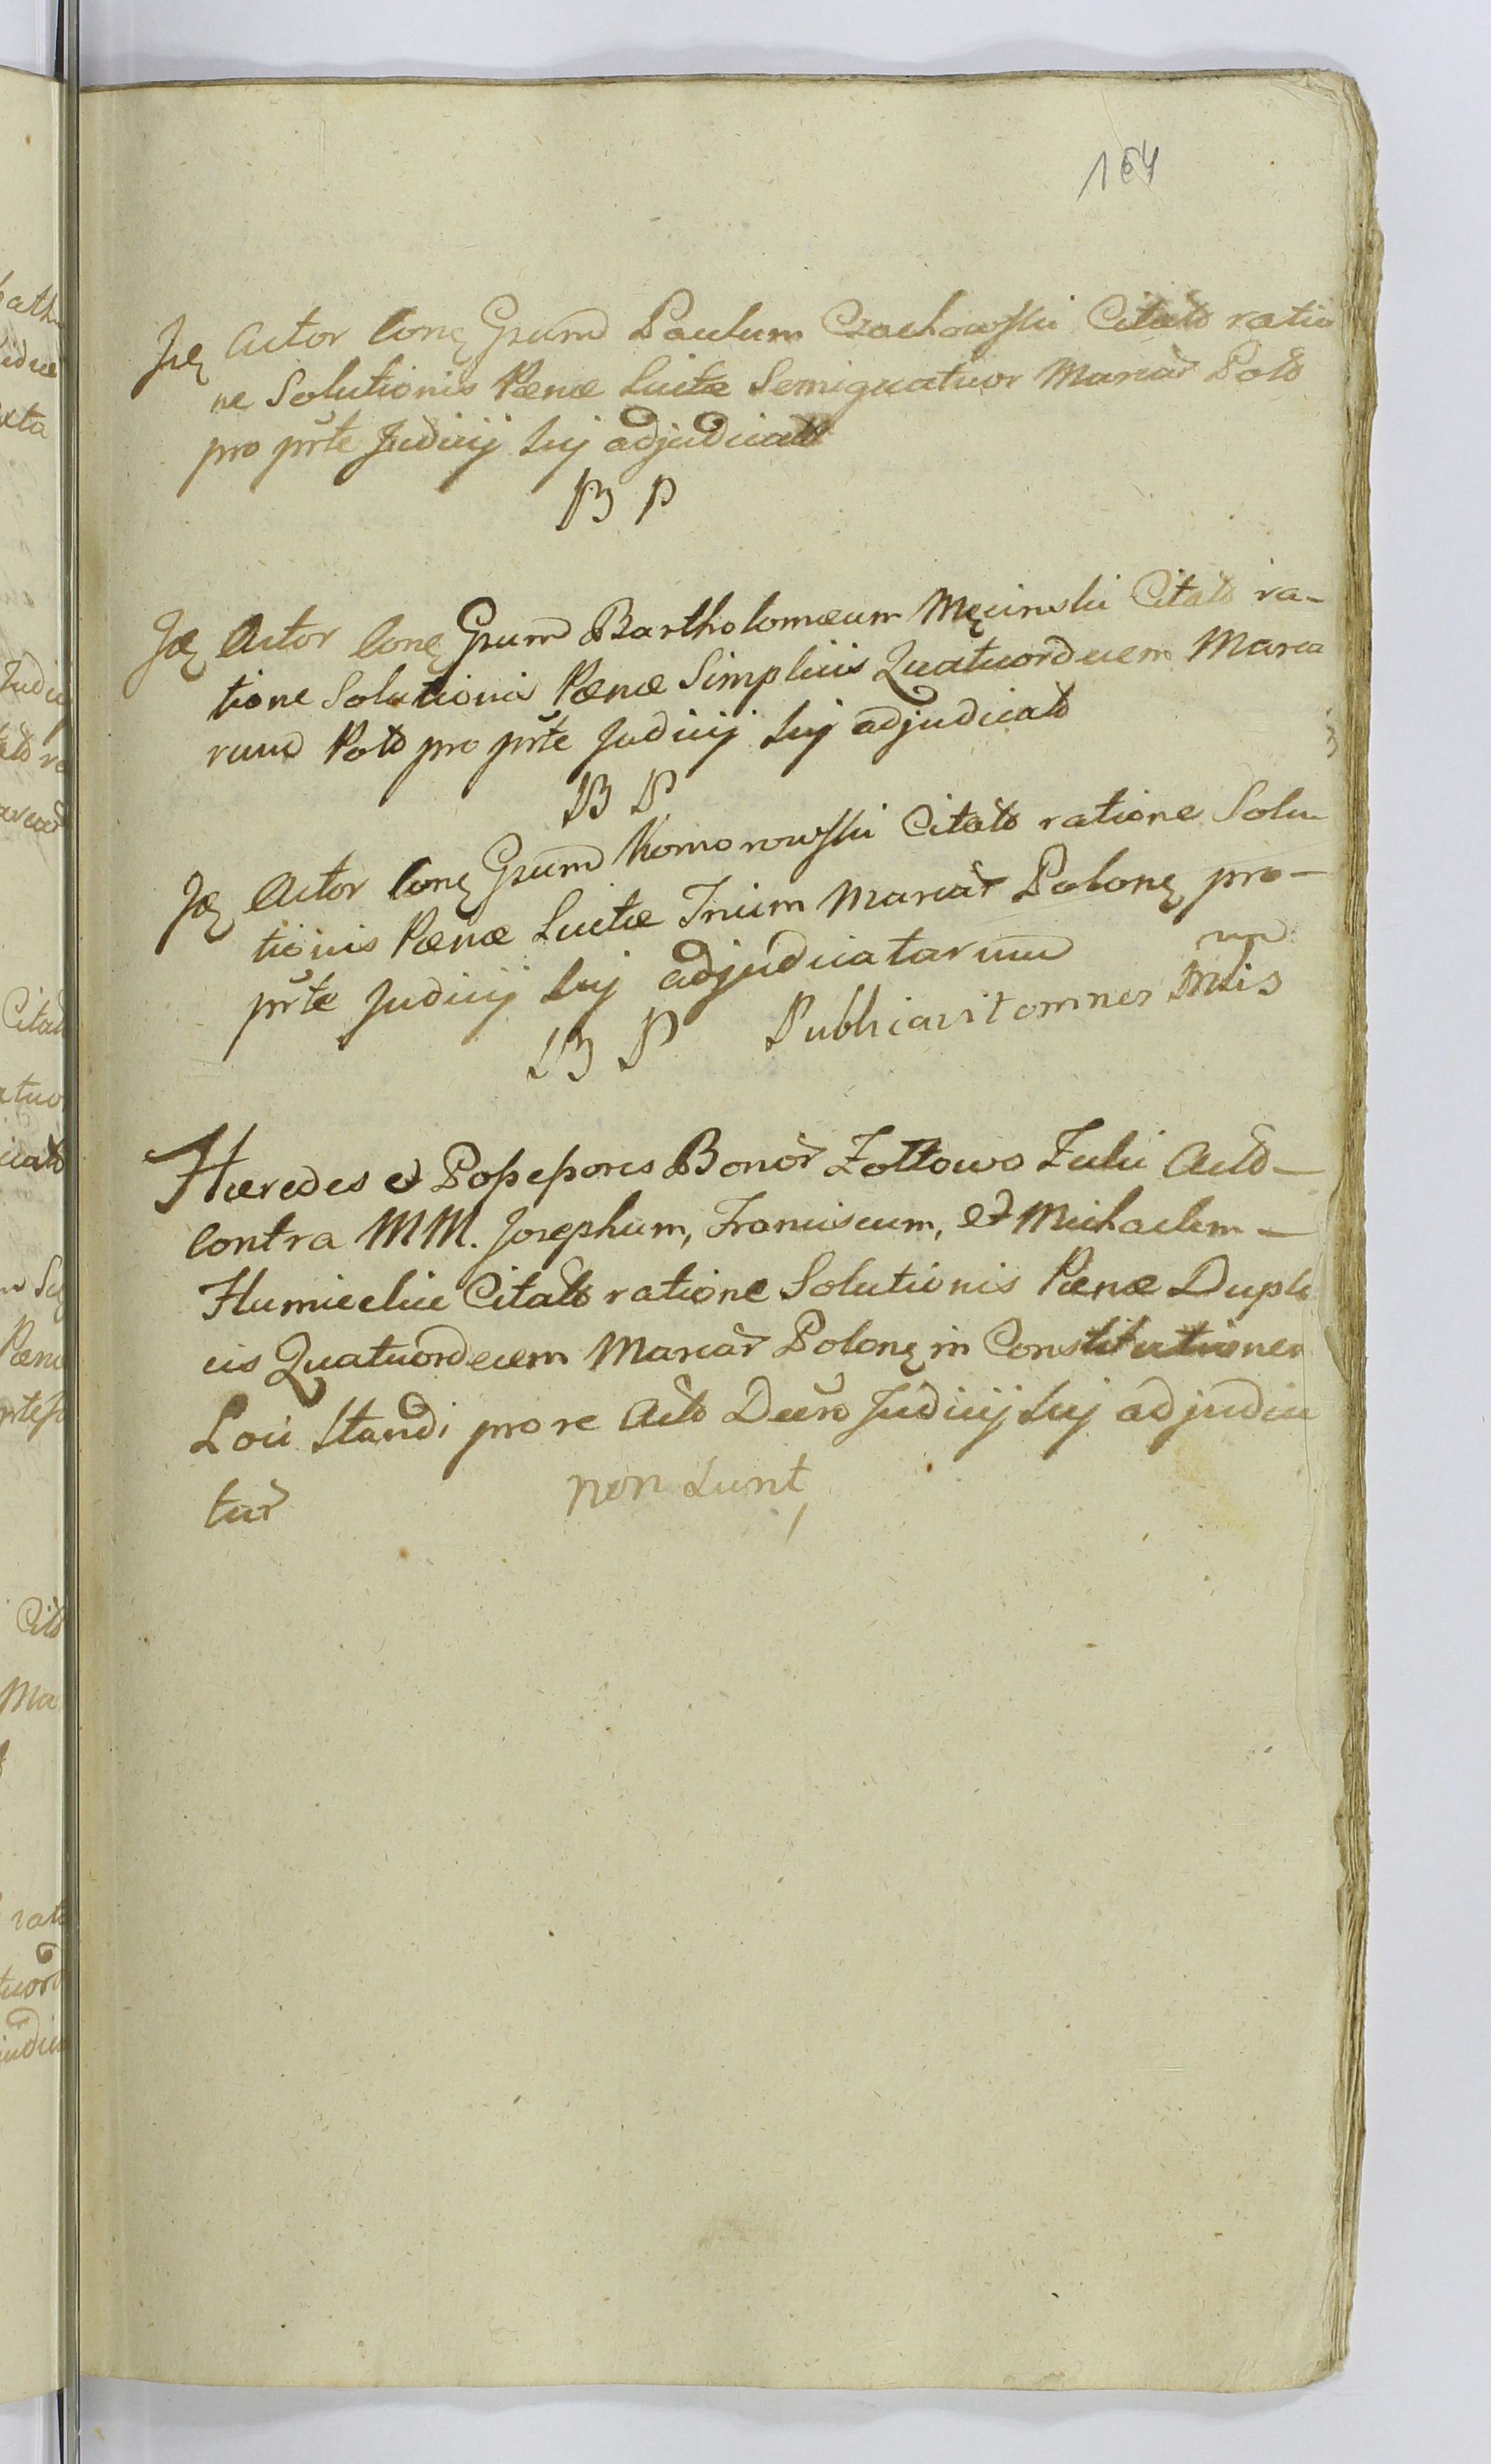 164
Ję Actor Conę Gsum Paulum Czachowski Citato ratio
ne Solutionis Pænæ Luitæ Semiquatuor Marcar Polo
pro prte Judicij Sui adjudicato
B P
Ję Actor Conę Gsum Bartholomæum Męcinski Citato ra-
tione Solutionis Pænæ Simplicis Quatuordecem Marca
rum Polo pro prte Judicij Sui adjudicato
B P
Ję Actor Conę Gsum Komorowski Citato ratione Solu-
tionis Pænæ Luitæ Trium Marcar Polonę pro-
prte Judicij Sui adjudicatarum
B P Publicavit omnes
Hæredes et Possessores Bonor Zołtowo Zulki Acto-
Contra MM. Josephum, Franciscum, et Michaelem-
Humieckie Citato ratione Solutionis Pænæ Dupli
cis Quatuordecem Marcar Polonę in Constitutionen
Loci Standi pro re Acto Decro Judicij Sui adjudica
tar
non sunt